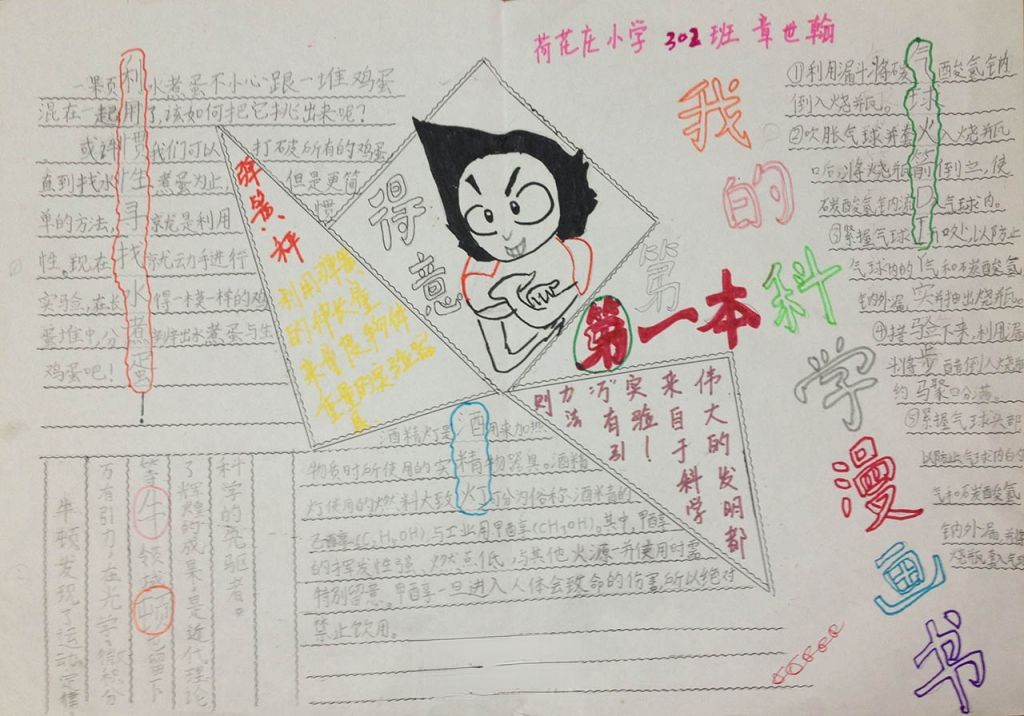 荷花庄小学 302 班 章世翰
我的第一本科学漫画书
第
得意
利用惯性寻找水煮蛋
一颗水煮蛋不小心跟一堆鸡蛋
混在一起用了,该如何把它挑出来呢?
我们可以打破所有的鸡蛋
直到找水煮蛋为止,但是更简
单的方法,就是利用惯
性。现在就动手进行
实验,在长得一模一样的鸡
蛋堆中分辨出水煮蛋与生
鸡蛋吧!
弹簧、秤
利用弹簧
的伸长量
来普及物体
重量的实验器
伟大的发明都
来自于科学
实验!
万有引
力法则
酒精灯
酒精灯是用来加热
物质时所使用的实物器具。酒精
灯使用的燃料大致可分为俗称酒精的
乙醇(C₂H₅OH)与工业用甲醇(CH₃OH)。其中,甲醇
的挥发性强,燃点低,与其他火源并使用时需
特别留意。甲醇一旦进入人体会致命的伤害所以绝对
禁止饮用。
气球火箭
实验步骤
①利用漏斗将碳酸氢钠
倒入烧瓶。
②吹胀气球并套入烧瓶
口后,将烧瓶倒立,使
碳酸氢钠 气球内。
③紧握气球 以防止
气球内的气和碳酸氢
钠外漏,并抽出烧瓶。
下来,利用漏
斗将 醋倒入烧瓶
约 4分满。
⑤紧握气球头部
以防止气球内的
气和碳酸氢
钠外漏
牛顿
牛顿发现了运动定律
万有引力,在光学、微积分
等领域 留下
了辉煌的成果,是近代理论
科学的先驱者。